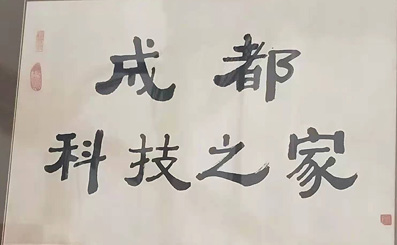 成都
科技之家